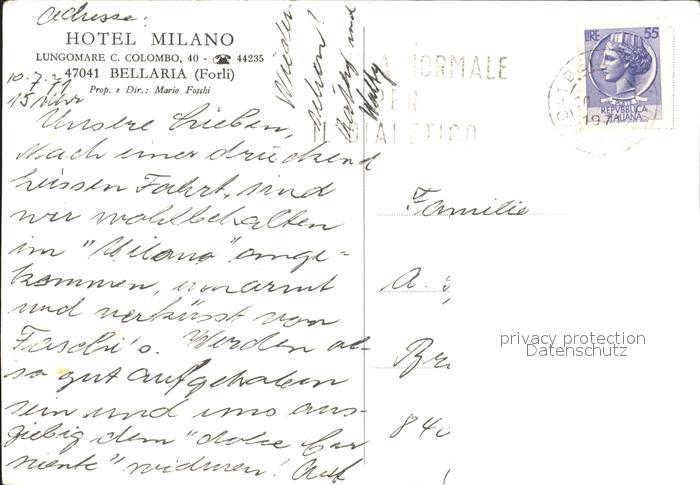 Adresse:
HOTEL MILANO
LUNGOMARE C. COLOMBO, 40 - ☎ 44235
47041 BELLARIA (Forlì)
Prop. e Dir.: Mario Foschi
10.7.
15 Uhr
Unsere Lieben,
Nach einer drückend
heissen Fahrt, sind
wir wohlbehalten
im "Milano" ange-
kommen, umarmt
und verküsst von
Faschi's. Werden al-
so gut aufgehoben
sein und uns aus-
giebig dem "dolce far
niente" widmen! Auf
Wieder-
sehen!
und
Wally
NORMALE
PER
IL DIABETICO
LIRE 55
REPVBBLICA
ITALIANA
197
Familie
A.
Br
840
privacy protection
Datenschutz